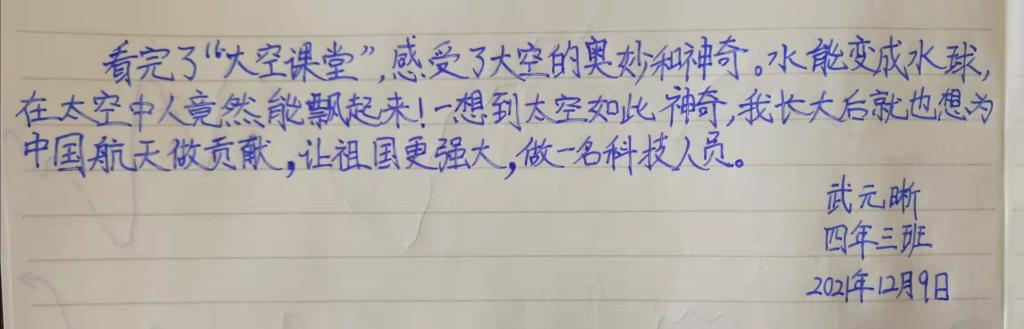 看完了“大空课堂”,感受了大空的奥妙和神奇。水能变成水球,
在太空中人竟然能飘起来!一想到太空如此神奇,我长大后就也想为
中国航天做贡献,让祖国更强大,做一名科技人员。
武元晰
四年三班
2021年12月9日